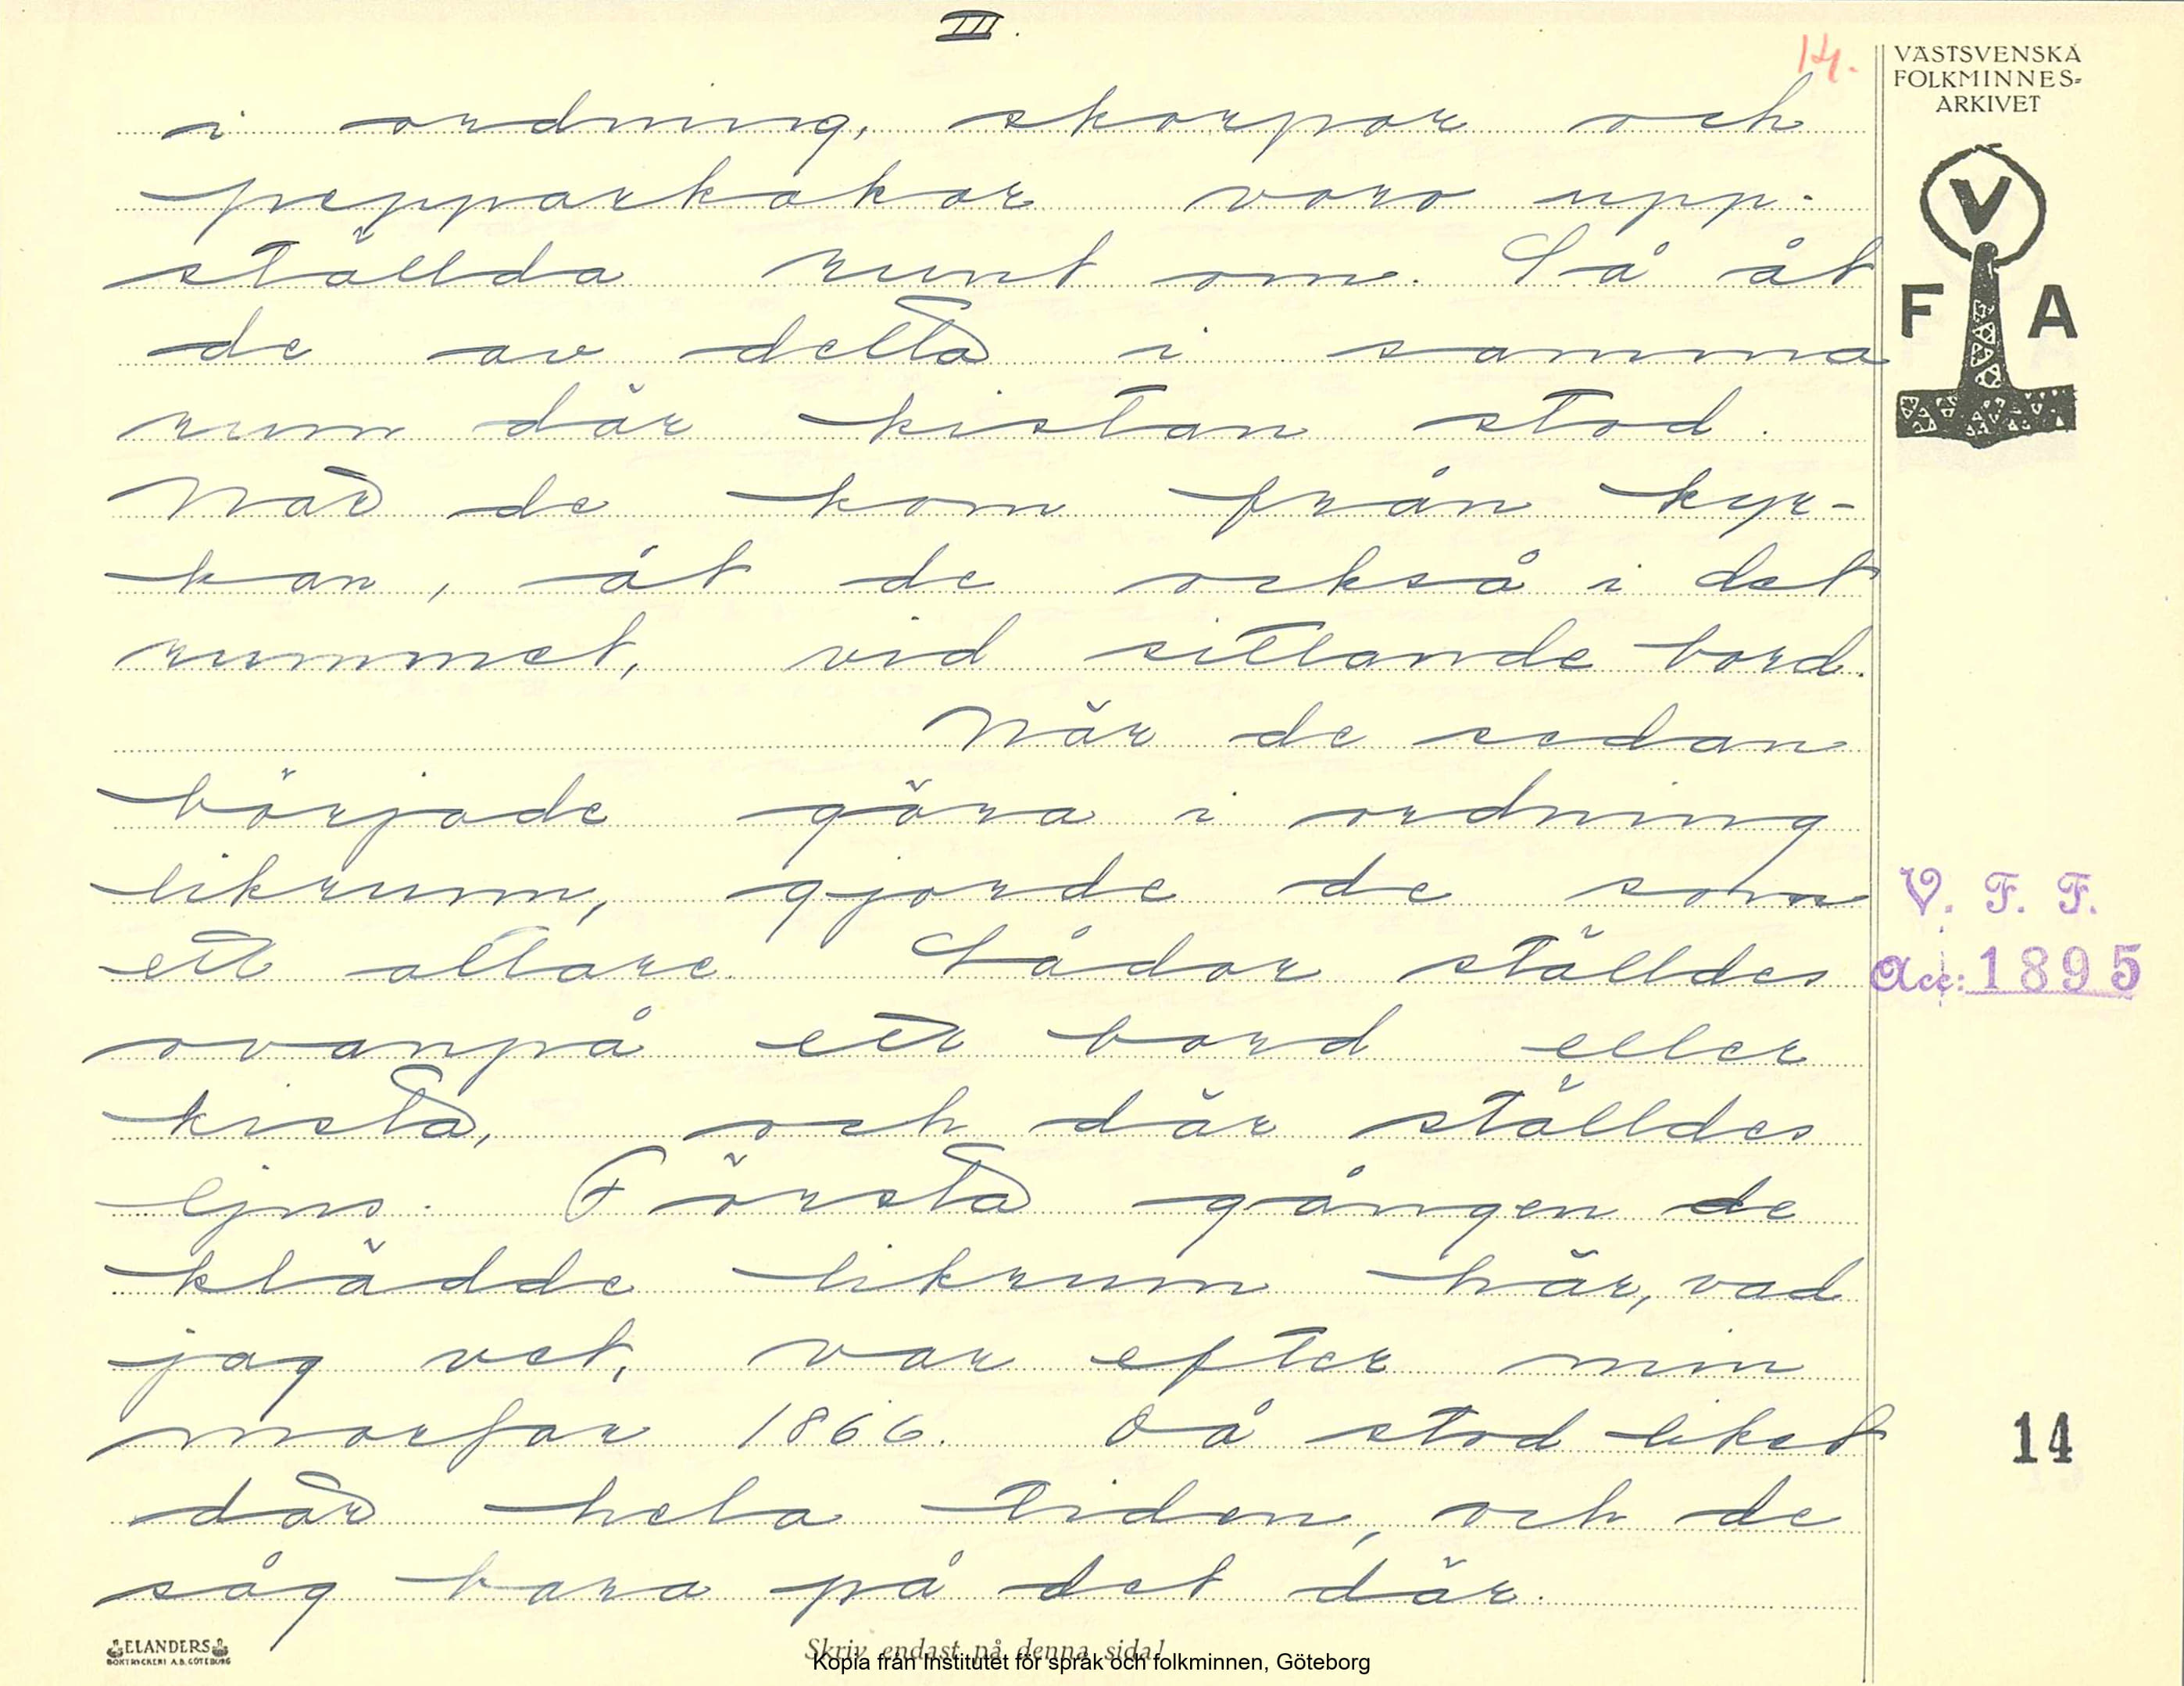 III.
14.
VÄSTSVENSKA
FOLKMINNES=
ARKIVET
V
F A
i ordning, skorpor och
pepparkakor voro upp-
ställda runt om. Så åt
de av detta i samma
rum där kistan stod.
När de kom från kyr-
kan, åt de också i det
rummet, vid sittande bord.
När de sedan
började göra i ordning
likrum, gjorde de som
ett altare. Lådor ställdes
ovanpå ett bord eller
kista, och där ställdes
ljus. Första gången de
klädde likrum här, vad
jag vet, var efter min
morfar 1866. Då stod liket
där hela tiden, och de
såg bara på det där.
V. F. F.
Acc: 1895
14
ELANDERS
BOKTRYCKERI A.B. GÖTEBORG
Skriv endast på denna sida!
Kopia från Institutet för språk och folkminnen, Göteborg